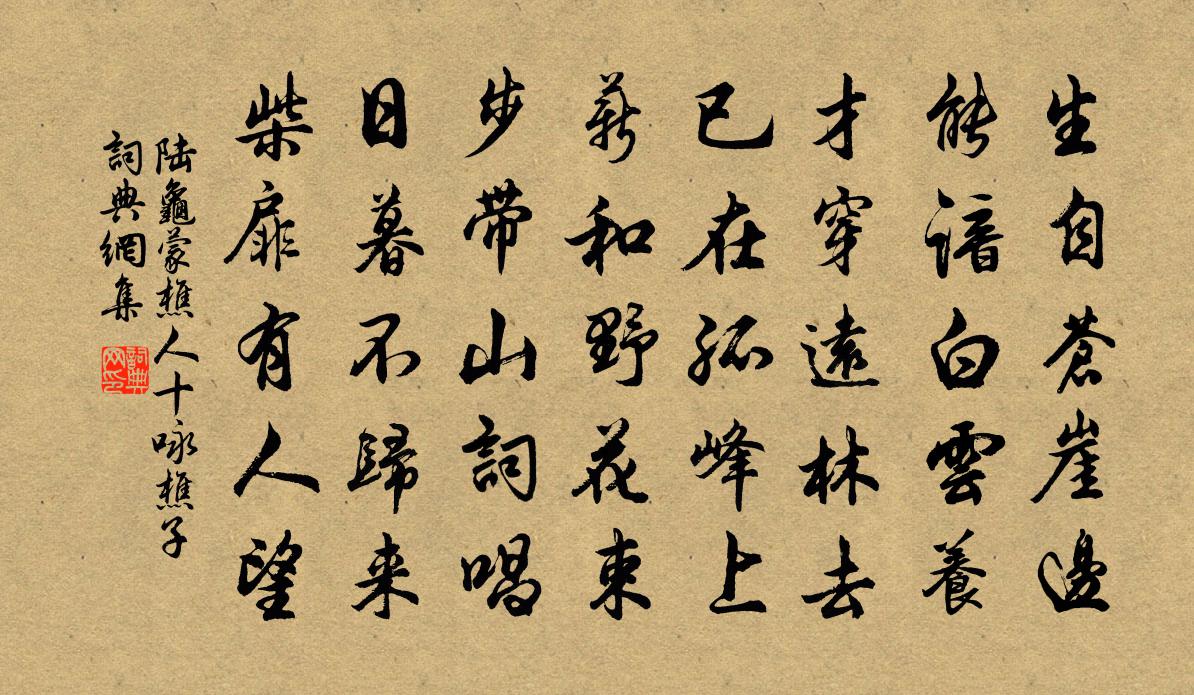 生自蒼崖邊
能諳白雲養
才穿遠林去
已在孤峰上
薪和野花束
步帶山詞唱
日暮不歸来
柴扉有人望
陆龜蒙樵人十咏樵子
詞典網集
詞典网印